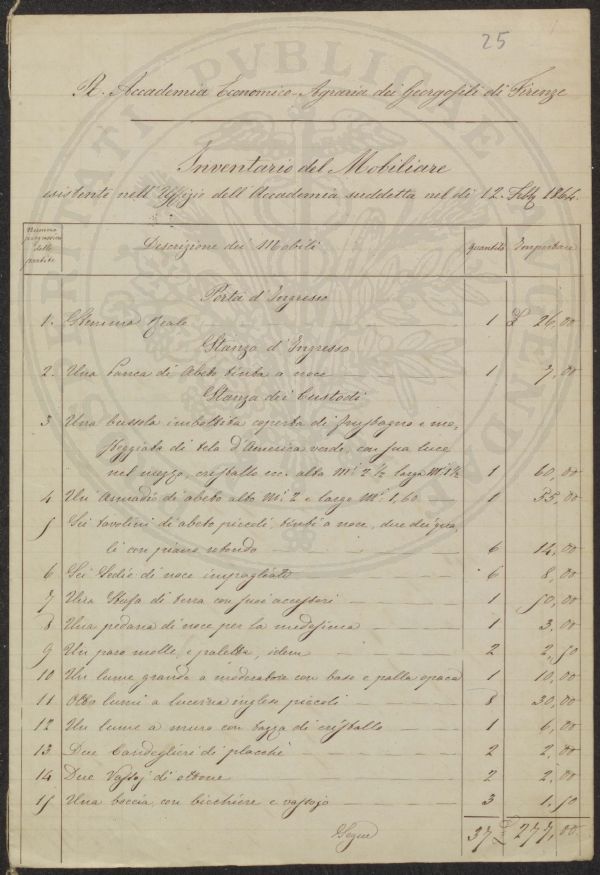 25
R. Accademia Economico-Agraria dei Georgofili di Firenze
Inventario del Mobiliare
esistente nell'Uffizio dell'Accademia suddetta nel dì 12. Febb. 1864.
Numero progressivo delle partite | Descrizione dei Mobili | Quantità | Importare
Porta d'Ingresso
1. Stemma Reale 1 £ 26,00
Stanza d'Ingresso
2. Una Panca di Abeto tinta a noce 1 7,00
Stanza dei Custodi
3 Una bussola imbottita coperta di frustagno e mo-
streggiata di tela d'America verde, con sua luce
nel mezzo, cristallo ecc. alta Mi. 2 ½ larga Mi. 1 ½ 1 60,00
4 Un Armadio di abeto alto Mi. 2 e largo Mi. 1,60 1 55,00
5 Sei tavolini di abeto piccoli, tinti a noce, due dei qua-
li con piano rotondo 6 14,00
6 Sei Sedie di noce impagliate 6 8,00
7 Una Stufa di terra con suoi accessori 1 50,00
8 Una pedana di noce per la medesima 1 3,00
9 Un paro molle, e paletta, idem 2 2,50
10 Un lume grande a moderatore con base e palla opaca 1 10,00
11 Otto lumi a lucerna inglese piccoli 8 30,00
12 Un lume a muro con tazza di cristallo 1 6,00
13 Due Candeglieri di placchè 2 2,00
14 Due Vassoj di ottone 2 2,00
15 Una boccia con bicchiere e vassojo 3 1,50
Segue 37 £ 277,00.